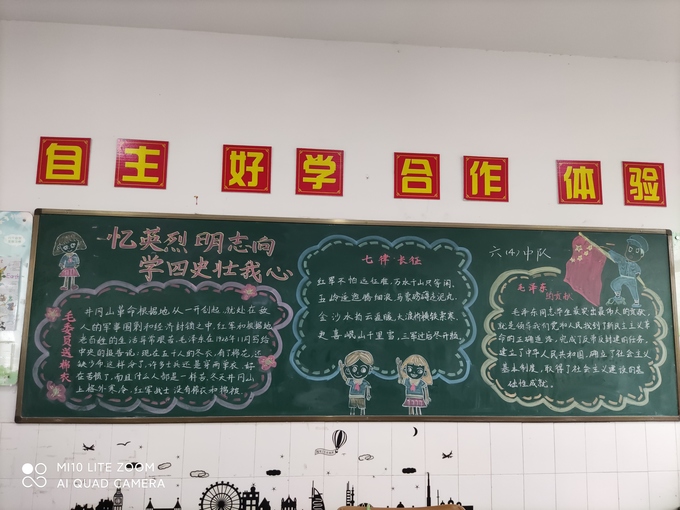 自主 好学 合作 体验
忆英烈 明志向
学四史壮我心
毛委员送棉衣
井冈山革命根据地从一开创起,就处在敌
人的军事围剿和经济封锁之中,红军和根据地
老百姓的生活异常艰苦。毛泽东在1928年11月写给
中央的报告说:现在五千人的冬衣,有了棉花,还
缺少布
这样冷了,许多士兵还是穿两单衣。好
在苦惯了,而且什么人都是一样苦。冬天井冈山
上格外寒冷,红军战士没有棉衣和棉被
七律 长征
红军不怕远征难,万水千山只等闲。
五岭逶迤腾细浪,乌蒙磅礴走泥丸。
金沙水拍云崖暖,大渡桥横铁索寒。
更喜岷山千里雪,三军过后尽开颜。
六(4)中队
毛泽东
的贡献
毛泽东同志毕生最突出最伟大的贡献,
就是领导我们党和人民找到了新民主主义革
命的正确道路,完成了反帝反封建的任务,
建立了中华人民共和国,确立了社会主义
基本制度,取得了社会主义建设的基
础性成就。
MI 10 LITE ZOOM
AI QUAD CAMERA